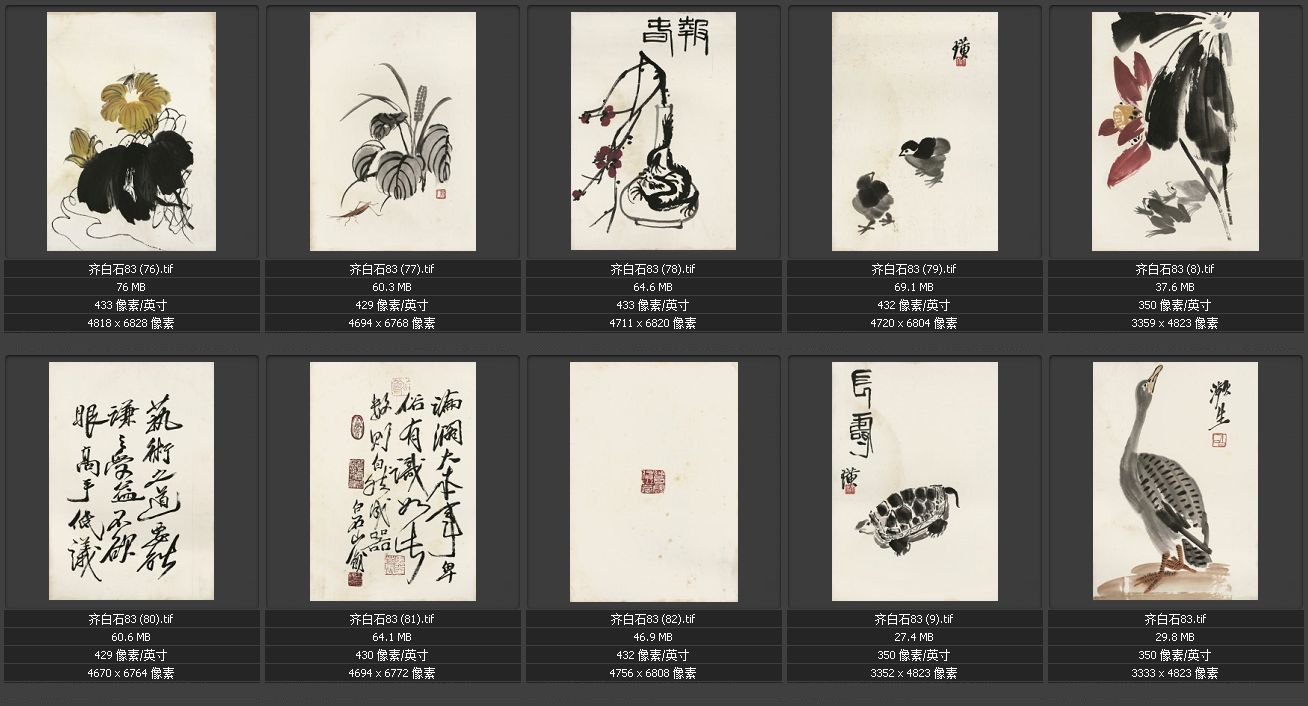 報
春
璜
齐白石83 (76).tif
76 MB
433 像素/英寸
4818 x 6828 像素
齐白石83 (77).tif
60.3 MB
429 像素/英寸
4694 x 6768 像素
齐白石83 (78).tif
64.6 MB
433 像素/英寸
4711 x 6820 像素
齐白石83 (79).tif
69.1 MB
432 像素/英寸
4720 x 6804 像素
齐白石83 (8).tif
37.6 MB
350 像素/英寸
3359 x 4823 像素
藝術之道要能
謙謙受益不欲
眼高手低議
白石山翁
長壽
璜
瀕生
齐白石83 (80).tif
60.6 MB
429 像素/英寸
4670 x 6764 像素
齐白石83 (81).tif
64.1 MB
430 像素/英寸
4694 x 6772 像素
齐白石83 (82).tif
46.9 MB
432 像素/英寸
4756 x 6808 像素
齐白石83 (9).tif
27.4 MB
350 像素/英寸
3352 x 4823 像素
齐白石83.tif
29.8 MB
350 像素/英寸
3333 x 4823 像素